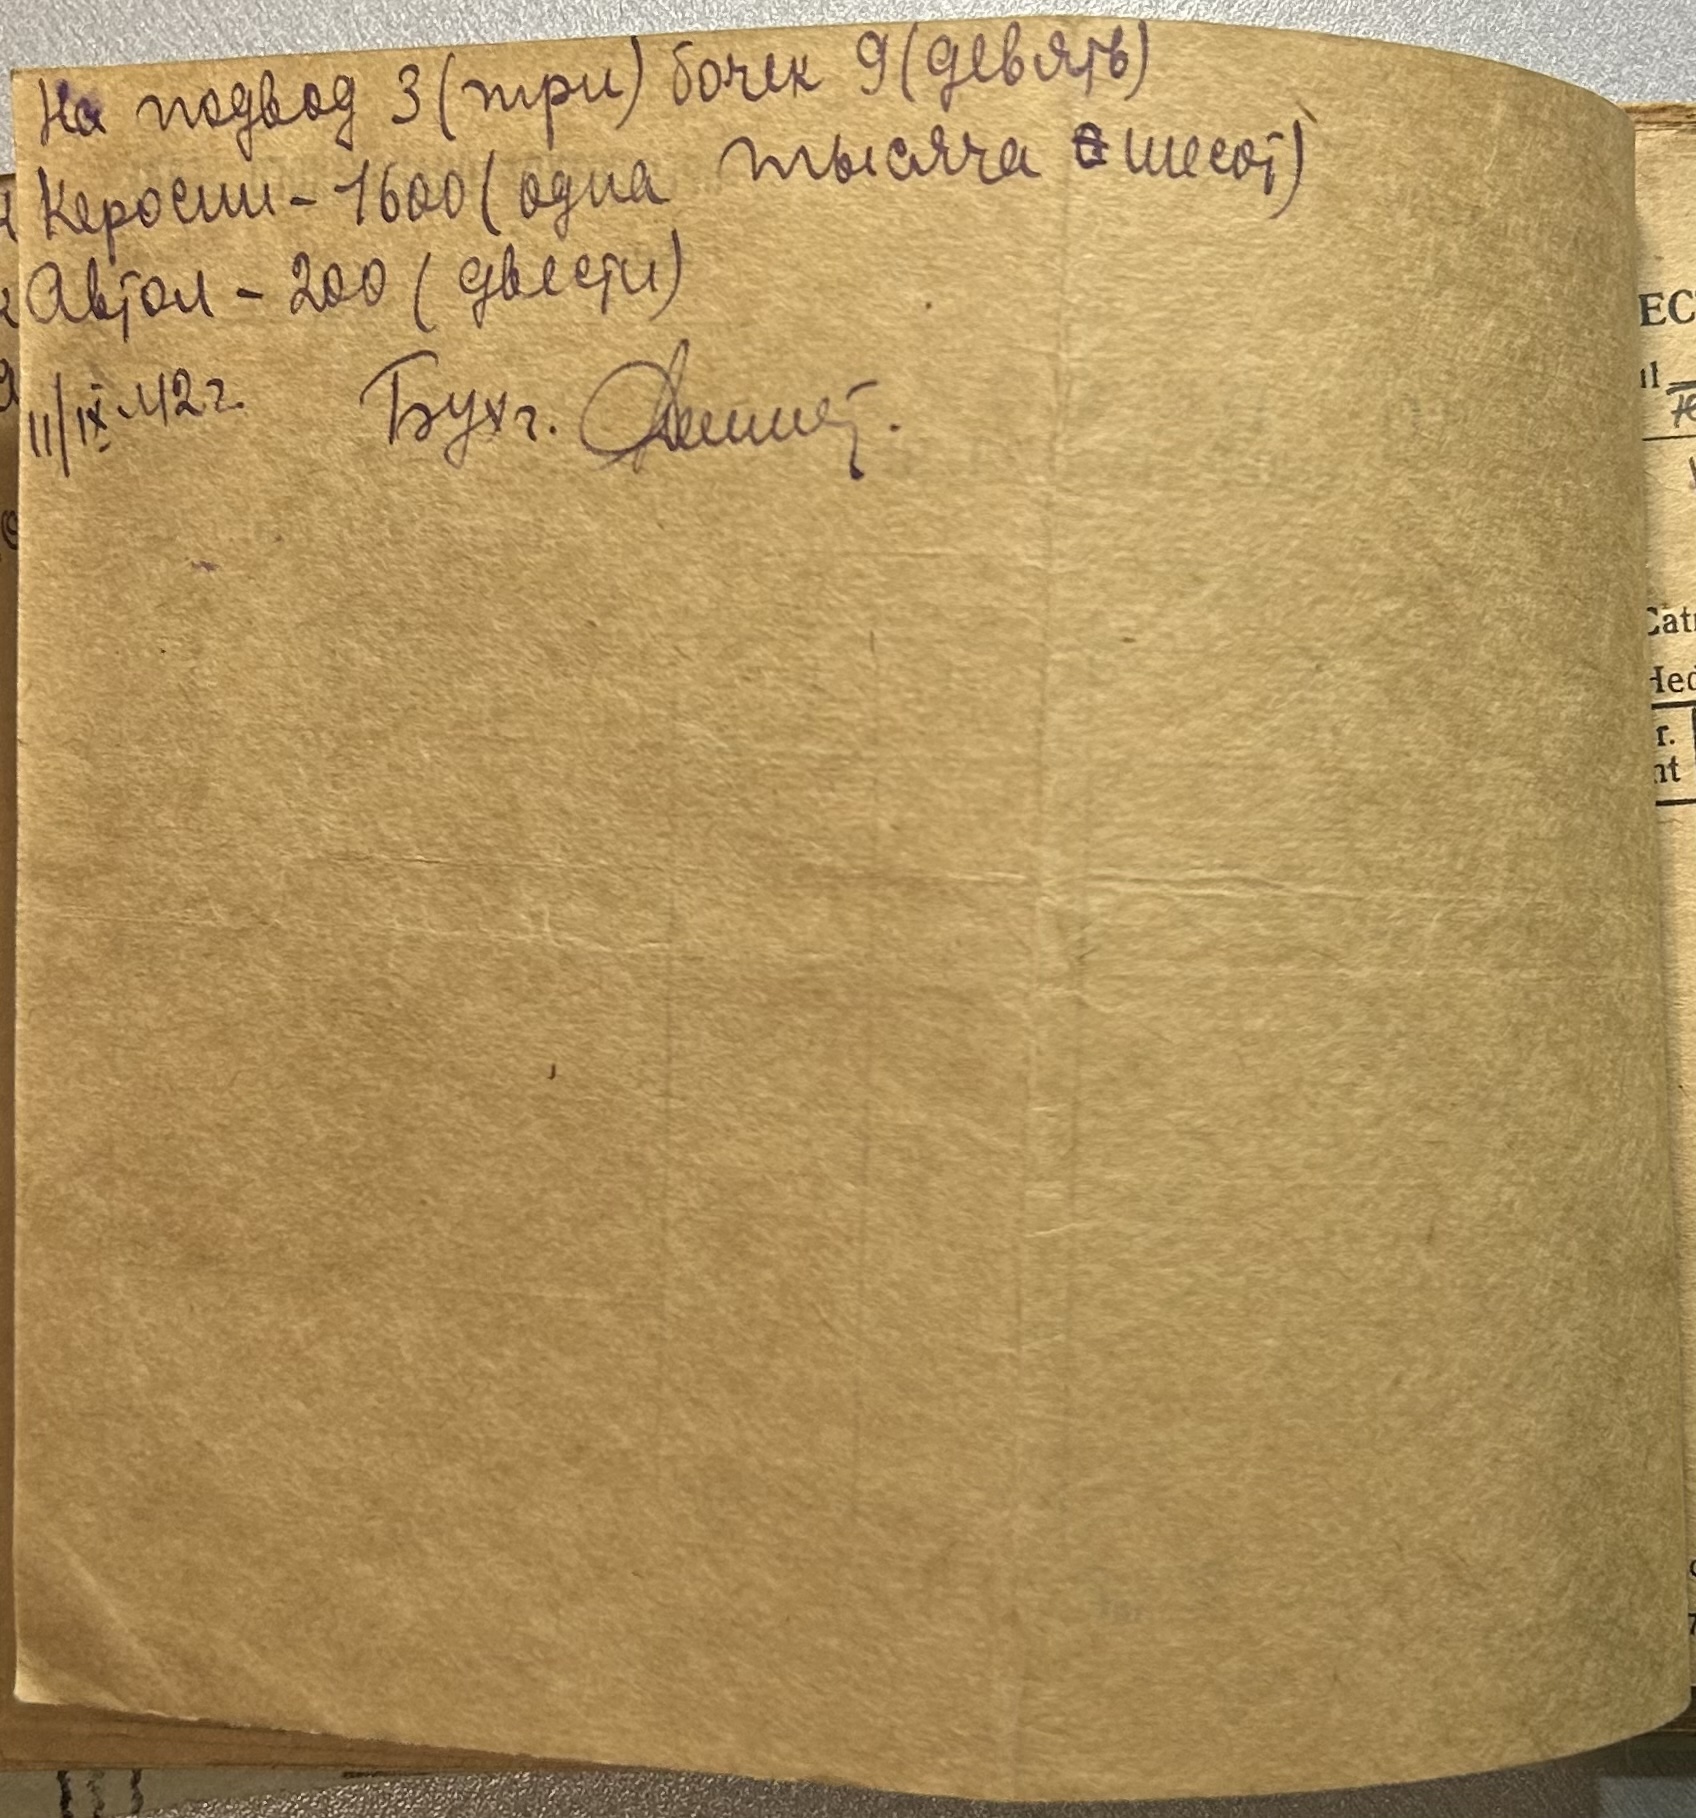 На подвод 3 (три) бочек 9 (девять)
Керосин - 1600 (одна тысяча шесот)
Автол - 200 (двести)
11/IX 42 г. Бухг.
EC
Catr
Hec
r.
nt